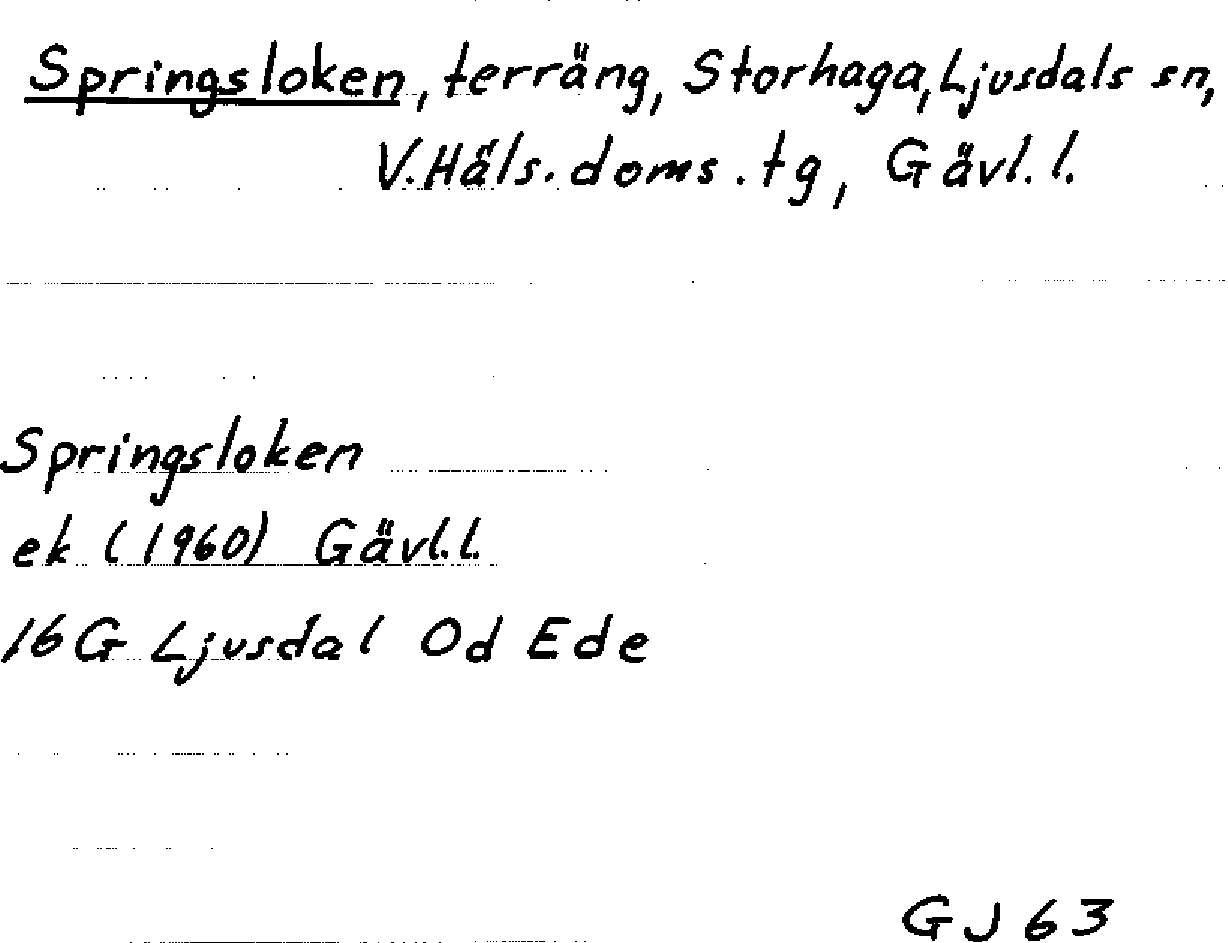 Springsloken, terräng, Storhaga, Ljusdals sn,
V. Häls. doms. tg, Gävl. l.
Springsloken
ek (1960) Gävl. l.
16G Ljusdal Od Ede
GJ 63